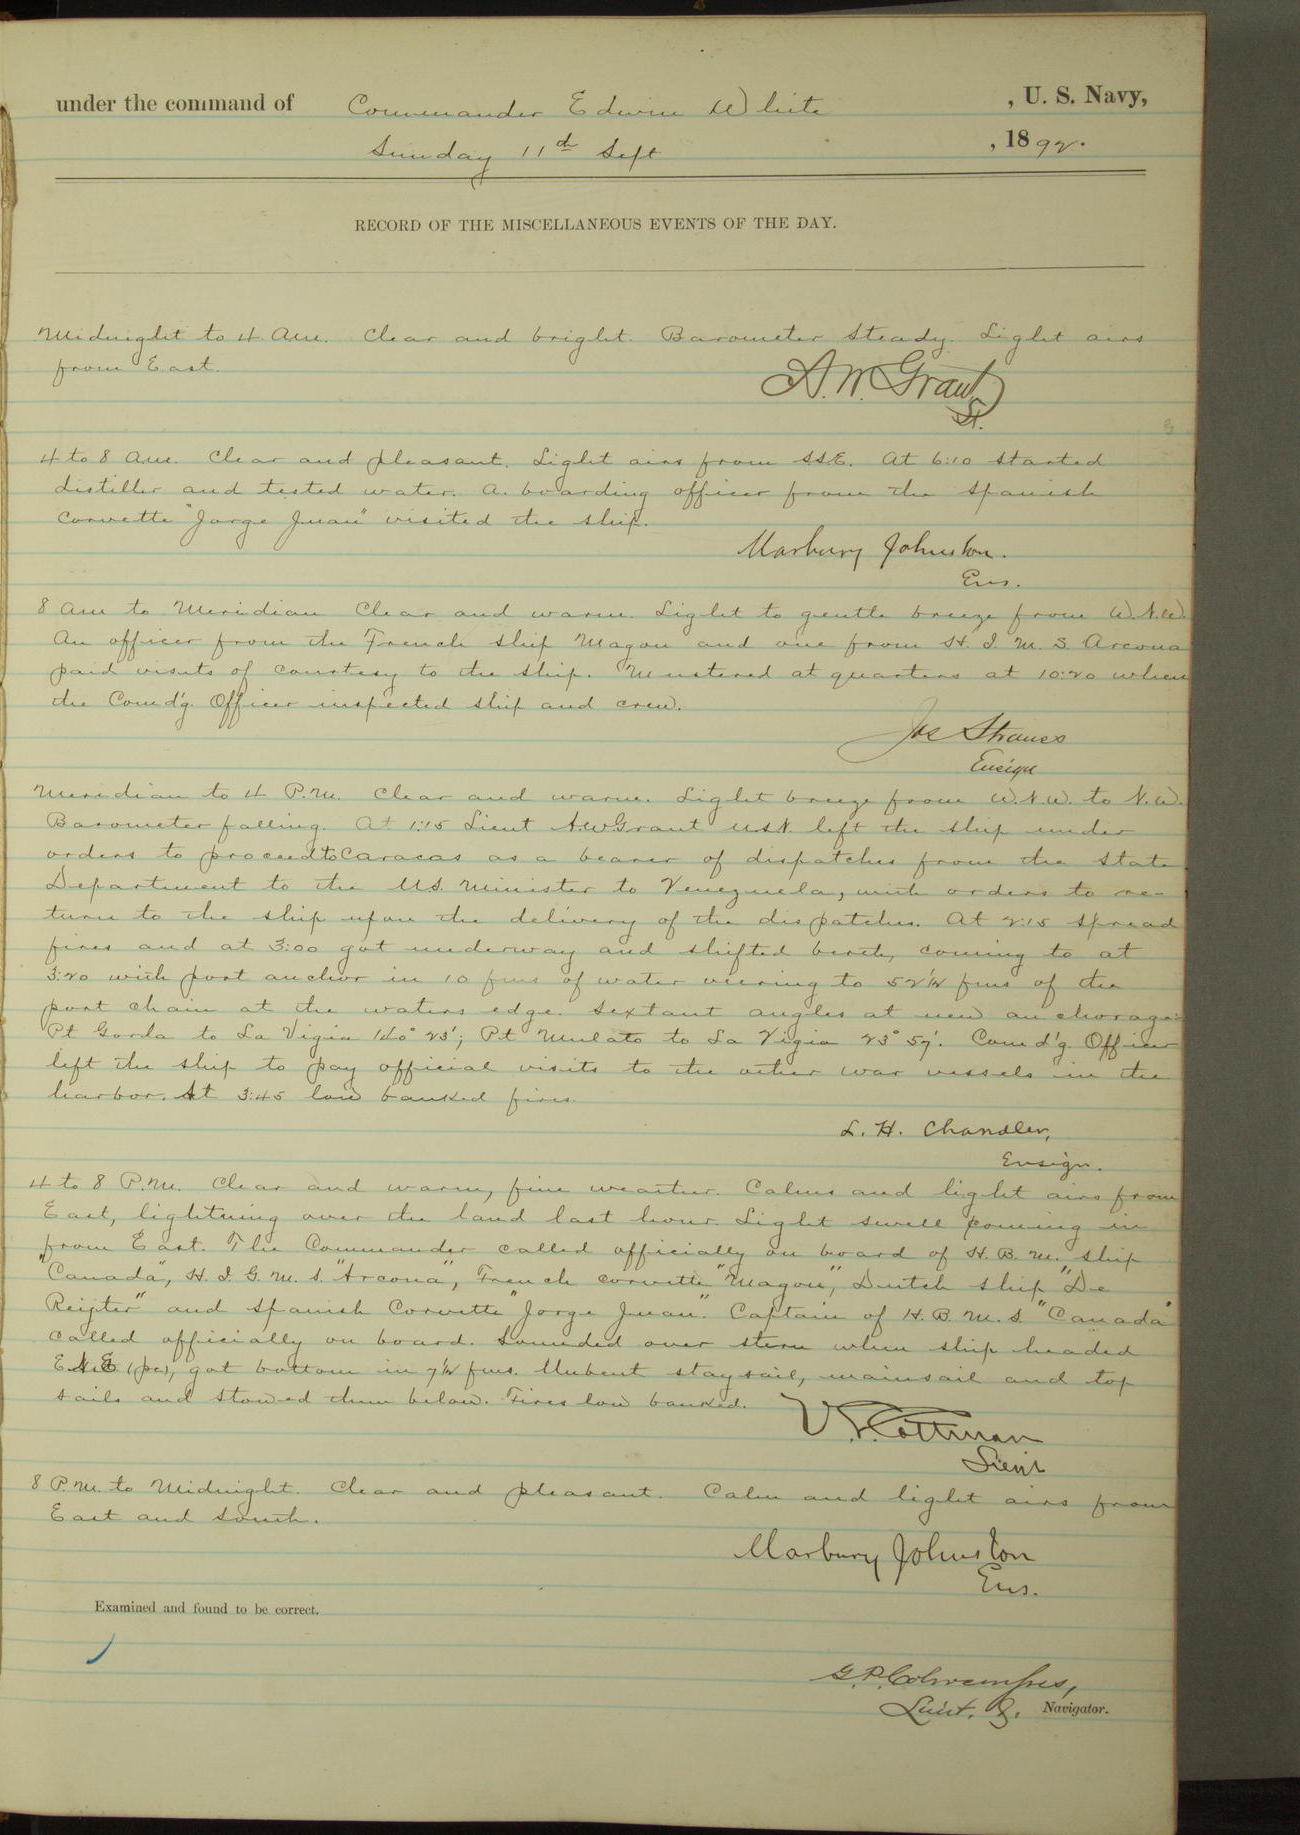 under the command of Commander Edwin White , U. S. Navy,
Sunday 11th Sept , 1892.
RECORD OF THE MISCELLANEOUS EVENTS OF THE DAY.
Midnight to 4 A.M. Clear and bright. Barometer steady. Light airs
from East.
A. W. Grant
Lt.
4 to 8 A.M. Clear and pleasant. Light airs from SSE. At 6:10 started
distiller and tested water. A. boarding officer from the Spanish
Corvette "Jorge Juan" visited the ship.
Marbury Johnston.
Ens.
8 A.M. to Meridian Clear and warm. Light to gentle breeze from W.N.W.
An officer from the French ship Magon and one from H. I. M. S. Arcona
paid visits of courtesy to the ship. Mustered at quarters at 10:20 when
the Comd'g. Officer inspected ship and crew.
Jos Strauss
Ensign
Meridian to 4 P.M. Clear and warm. Light breeze from W.N.W. to N.W.
Barometer falling. At 1:15 Lieut A.W.Grant U.S.N. left the ship under
orders to proceed to Caracas as a bearer of dispatches from the State
Department to the U.S. Minister to Venezuela, with orders to re-
turn to the ship upon the delivery of the dispatches. At 2:15 spread
fires and at 3:00 got underway and shifted berth, coming to at
3:20 with port anchor in 10 fms of water veering to 52½ fms of the
port chain at the waters edge. Sextant angles at new anchorage:
Pt Gorda to La Vigia 23'; Pt Mulato to La Vigia 23° 57'. Comd'g. Officer
left the ship to pay official visits to the other war vessels in the
harbor. At 3:45 low banked fires.
L. H. Chandler,
Ensign.
4 to 8 P.M. Clear and warm, fine weather. Calms and light airs from
East, lightning over the land last hour. Light swell coming in
from East. The Commander called officially on board of H. B. M. ship
"Canada", H. I. G. M. S. "Arcona", French corvette "Magon", Dutch ship "De
Reijter" and Spanish Corvette "Jorge Juan". Captain of H. B. M. S. "Canada"
called officially on board. Sounded over stern when ship headed
(pc), got bottom in 7½ fms. Unbent staysail, mainsail and top
sails and stowed them below. Fires low banked.
V. S. Cottman
Lieut
8 P.M. to Midnight. Clear and pleasant. Calm and light airs from
East and South.
Marbury Johnston
Ens.
Examined and found to be correct.
G. P. Colvocoresses,
Lieut. & Navigator.